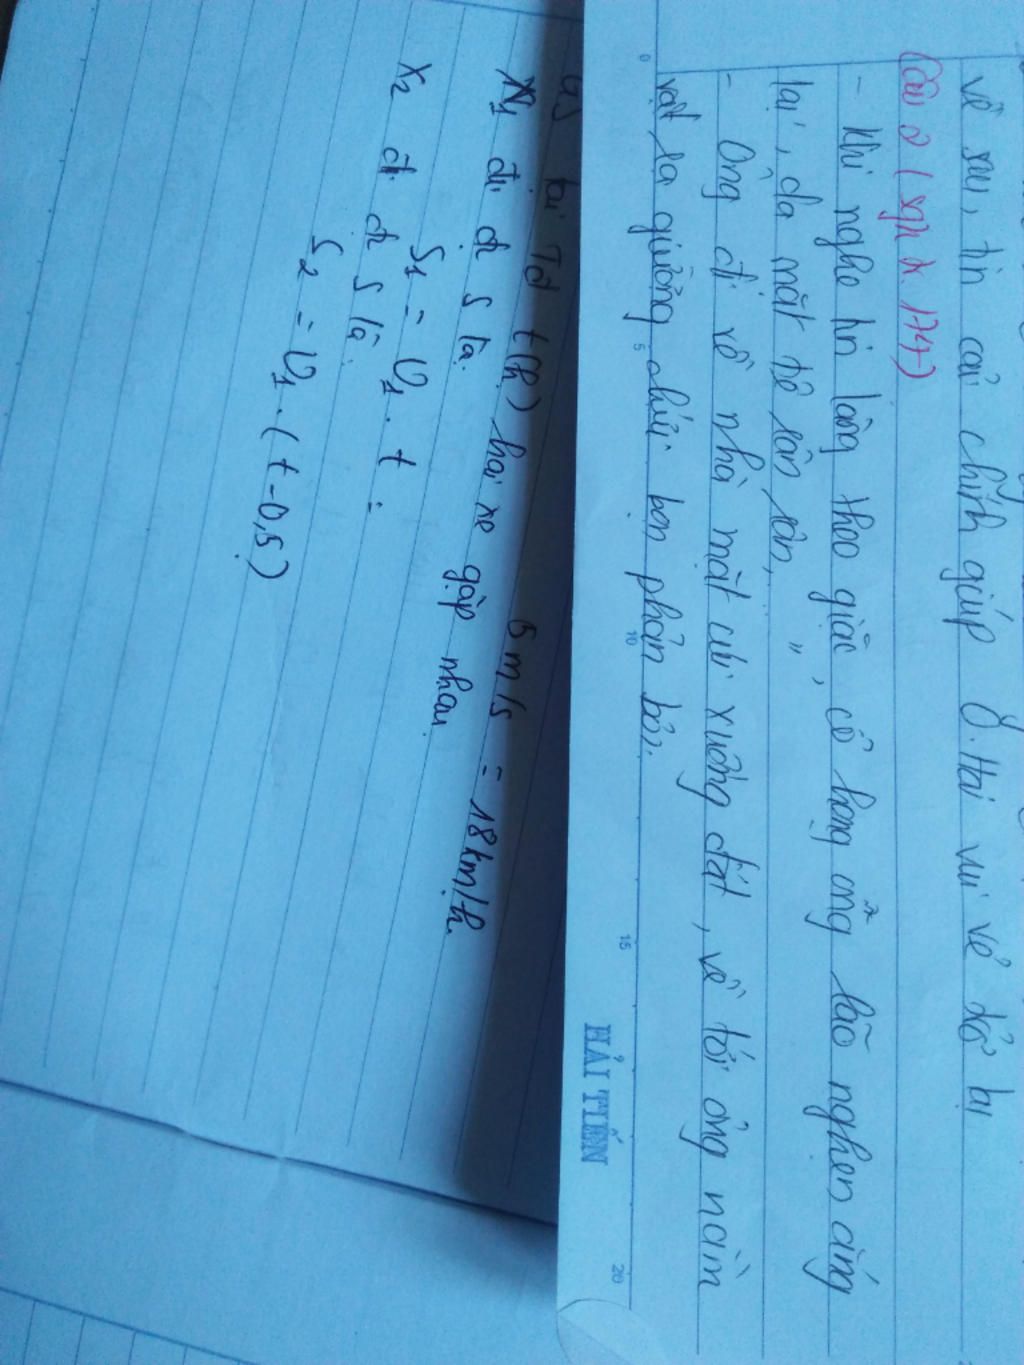 về sau, tin cải chính giúp Ô. Hai vui vẻ trở lại
Câu 2 (sgk tr. 174)
- Khi nghe tin làng theo giặc, cổ họng ông lão nghẹn ắng
lại, da mặt tê rân rân,,
- Ông đi về nhà mặt cúi xuống đất, về tới ông nằm
vật ra giường chửi bọn phản bội.
0 5 10 15 20
HẢI TIẾN
GS tại Tđ t(h) hai xe gặp nhau.
5m/s = 18km/h.
X1 đi đc S là.
S1 = V1 . t =
X2 đi đc S là.
S2 = V1 . (t-0,5)